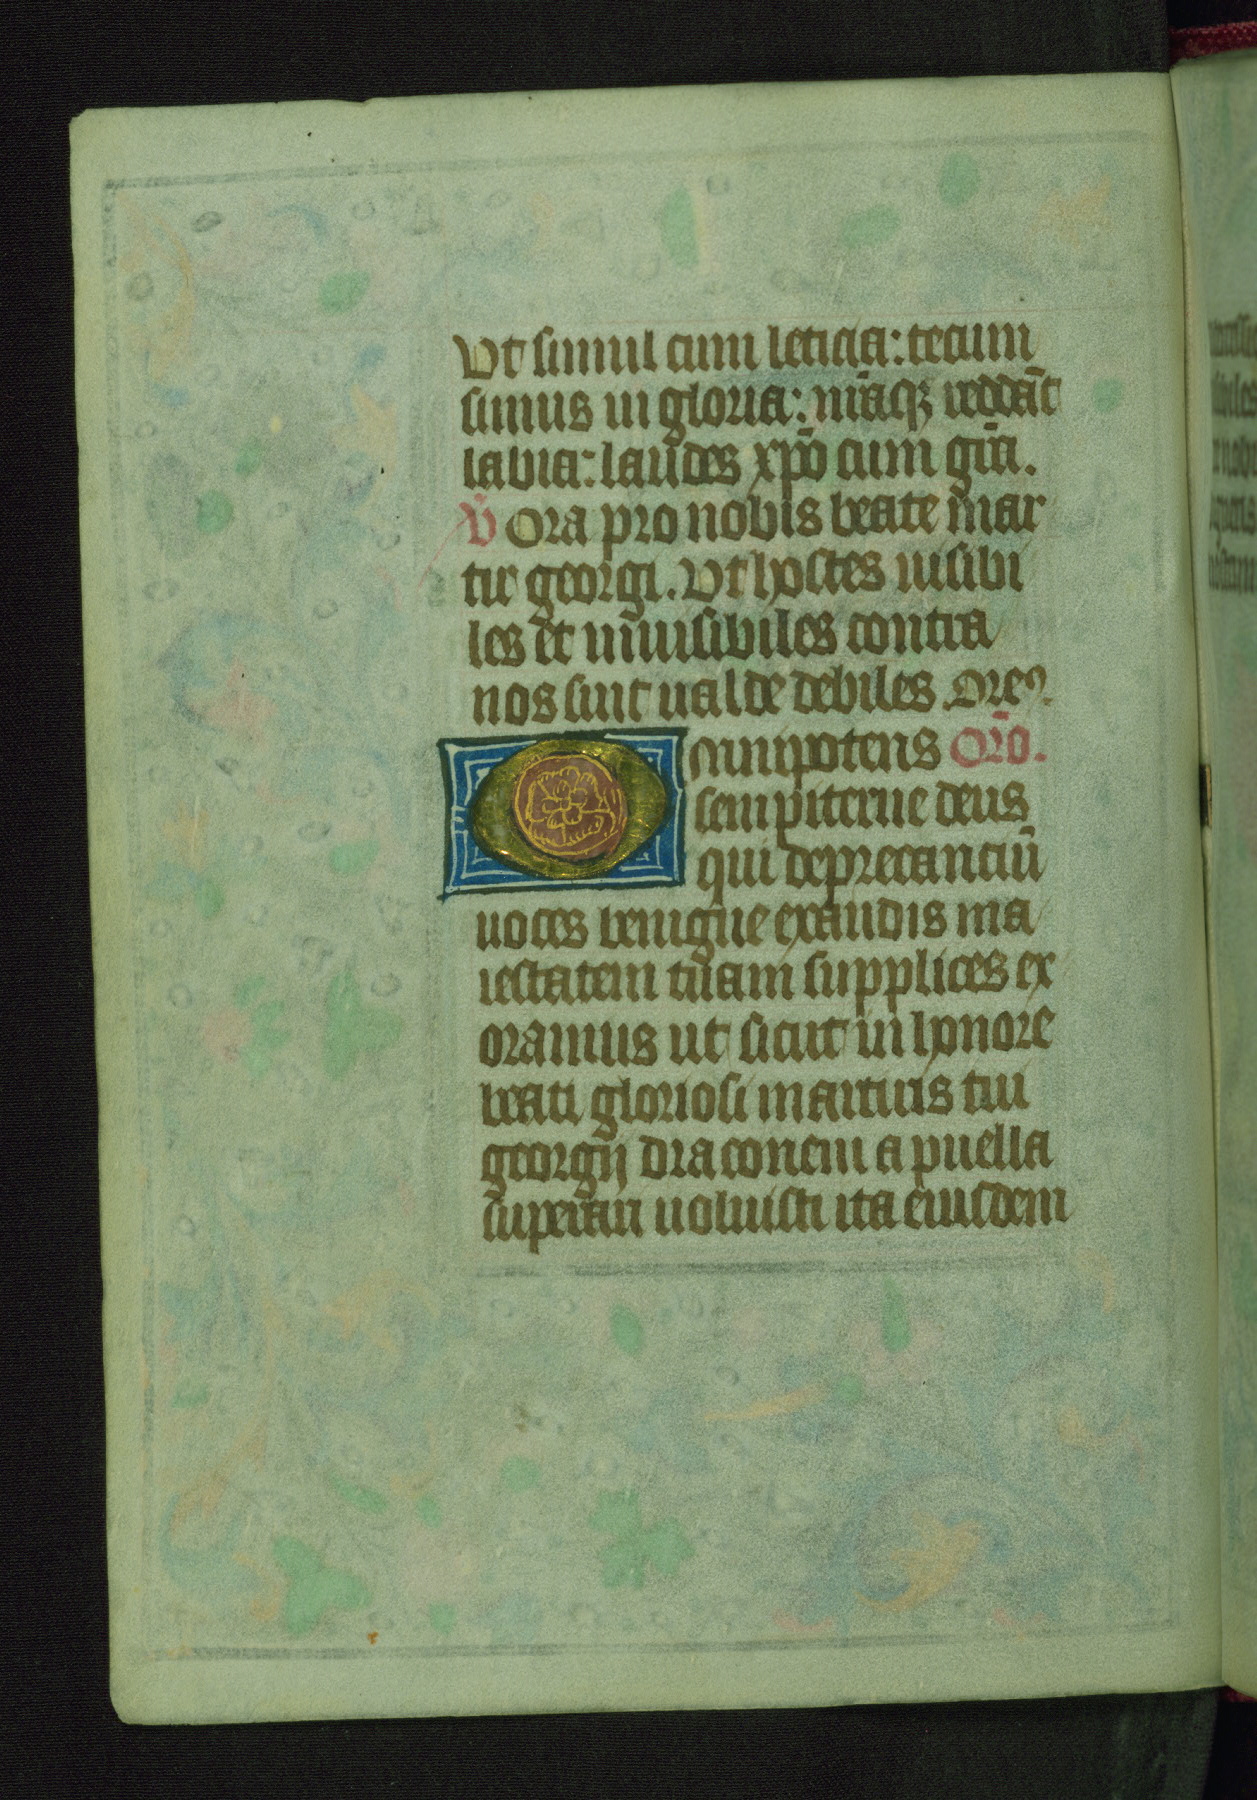 Ut simul cum leticia: tecum
simus in gloria: nr̃aqꝫ reddãt
labia: laudes xp̃o cum gr̃a.
V̄ Ora pro nobis beate mar
tir georgi. Ut hostes uisibi
les et inuisibiles contra
nos sint ualde debiles. Orem9.
Omnipotens Orõ.
sempiterne deus
qui deprecanciũ
uoces benigne exaudis ma
iestatem tuam supplices ex
oramus ut sicut in honore
beati gloriosi martiris tui
georgij draconem a puella
superari uoluisti ita eiusdem